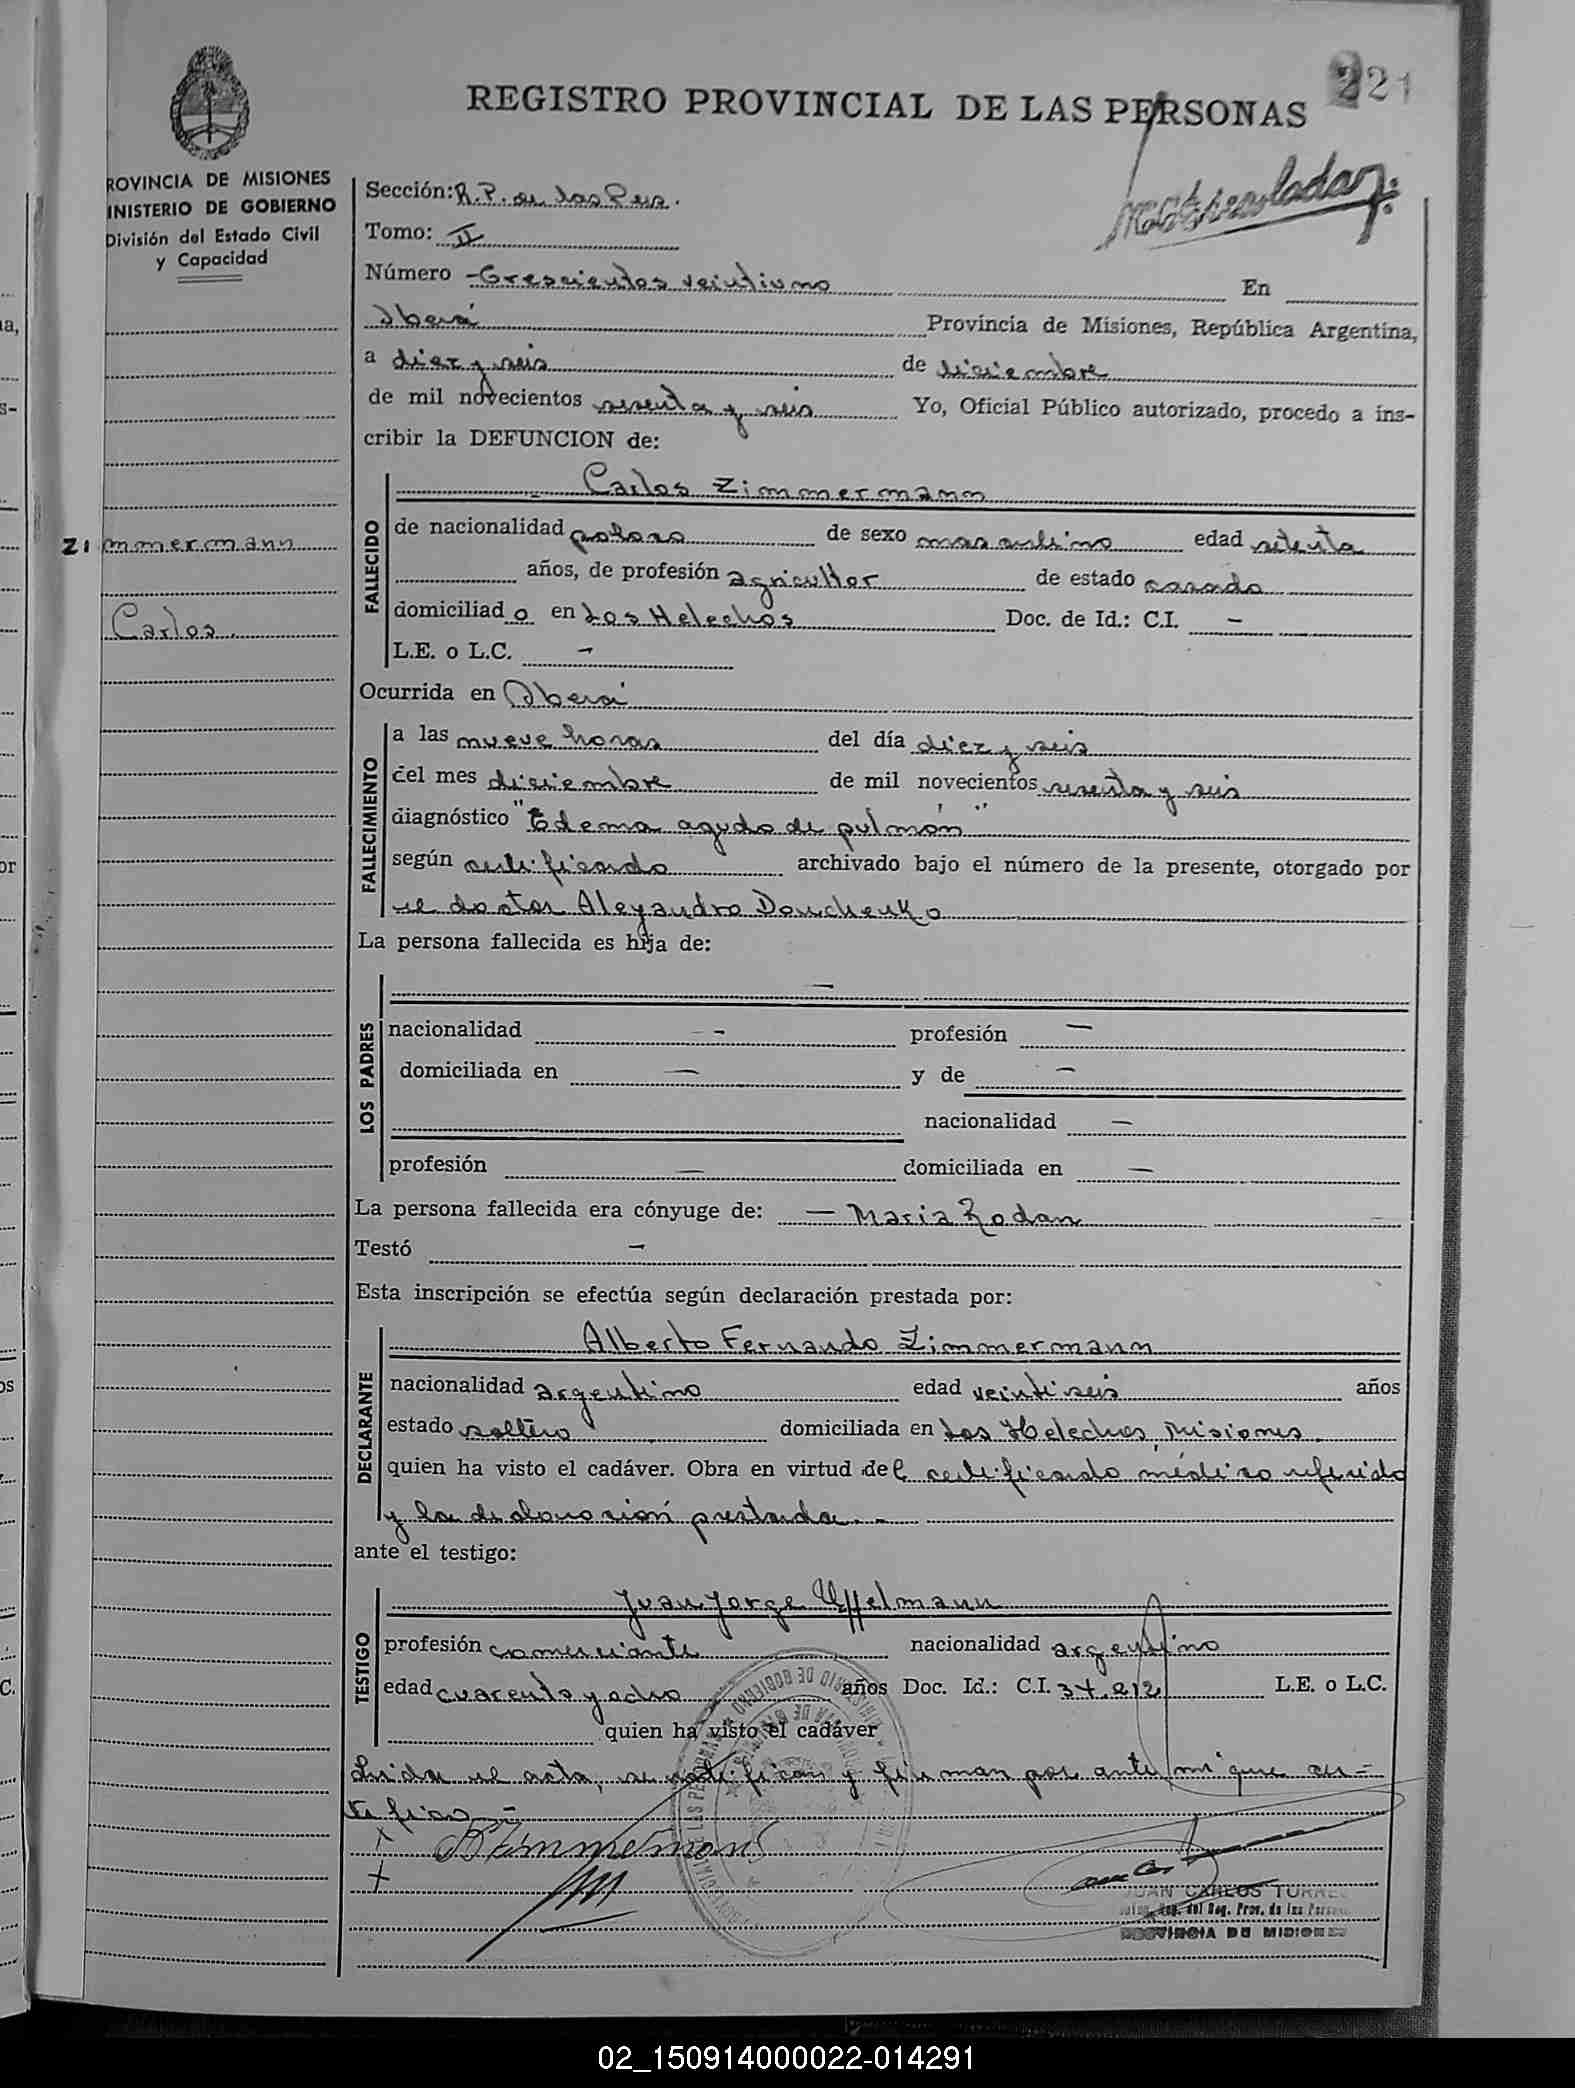 221
REGISTRO PROVINCIAL DE LAS PERSONAS
ROVINCIA DE MISIONES
INISTERIO DE GOBIERNO
División del Estado Civil
y Capacidad
Sección: R.P. de las Pers.
Tomo: II
Número - Trescientos veintiuno En
Oberá Provincia de Misiones, República Argentina,
a diez y seis de diciembre
de mil novecientos sesenta y seis Yo, Oficial Público autorizado, procedo a ins-
cribir la DEFUNCION de:
Zimmermann
Carlos
FALLECIDO
Carlos Zimmermann
de nacionalidad polaco de sexo masculino edad setenta
años, de profesión agricultor de estado casado
domiciliado en Los Helechos Doc. de Id.: C.I. -
L.E. o L.C. -
Ocurrida en Oberá
FALLECIMIENTO
a las nueve horas del día diez y seis
del mes diciembre de mil novecientos sesenta y seis
diagnóstico "Edema agudo de pulmón"
según certificado archivado bajo el número de la presente, otorgado por
el doctor Aleyandro Douchenko
La persona fallecida es hija de:
LOS PADRES
-
nacionalidad - profesión -
domiciliada en - y de -
nacionalidad -
profesión - domiciliada en -
La persona fallecida era cónyuge de: - Maria Rodan
Testó -
Esta inscripción se efectúa según declaración prestada por:
DECLARANTE
Alberto Fernando Zimmermann
nacionalidad argentino edad veintiseis años
estado soltero domiciliada en Los Helechos, Misiones.
quien ha visto el cadáver. Obra en virtud del certificado médico referido
y la declaración prestada.-
ante el testigo:
TESTIGO
Juan Jorge Uffelmann
profesión comerciante nacionalidad argentino
edad cuarenta y ocho años Doc. Id.: C.I. 37.212 L.E. o L.C.
quien ha visto el cadáver
Leida el acta, se ratifican y firman por ante mi que cer-
tifico.-
Zimmermann
JUAN CARLOS TORRES
del Reg. Prov. de las Personas
PROVINCIA DE MISIONES
02_150914000022-014291